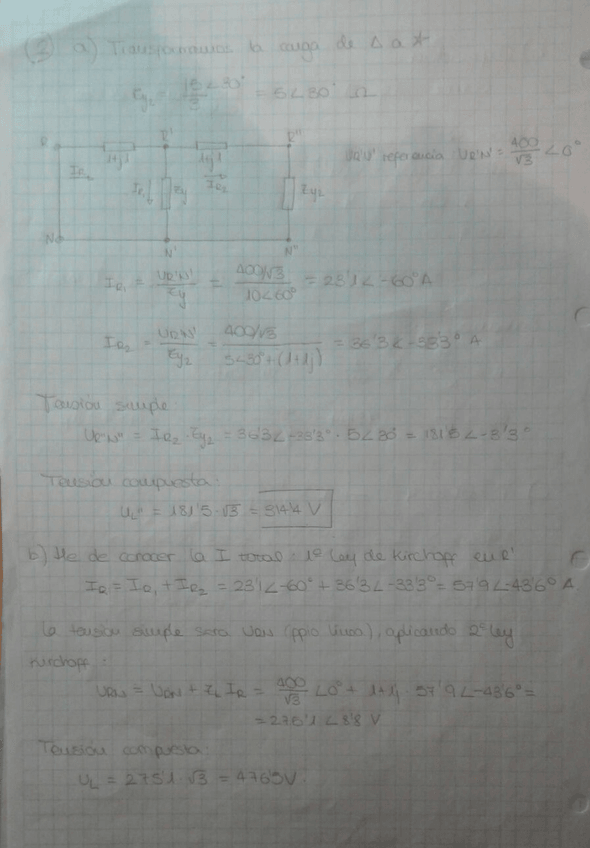 (2) a) Transformamos la carga de Δ a *
Zy2 = 15∠30° / 3 = 5∠30° Ω
R 1+j1 R' 1+j1 R''
UR'N' referencia UR'N' = 400/√3 ∠0°
IR IR1 Zy IR2 Zy2
N N' N''
IR1 = UR'N'/Zy = 400/√3 / 10∠60° = 23'1∠-60° A
IR2 = UR'N'/Zy2 = 400/√3 / 5∠30°+(1+1j) = 36'3∠-33'3° A
Tensión simple:
UR''N'' = IR2 · Zy2 = 36'3∠-33'3° · 5∠30° = 181'5∠-3'3°
Tensión compuesta:
UL'' = 181'5·√3 = 314'4 V
b) He de conocer la I total: 1º ley de Kirchoff en R'
IR = IR1 + IR2 = 23'1∠-60° + 36'3∠-33'3° = 57'9∠-43'6° A
la tensión simple será URN (ppio línea), aplicando 2º ley
Kirchoff:
URN = UR'N' + ZL IR = 400/√3 ∠0° + 1+1j · 57'9∠-43'6° =
= 275'1∠8'8 V
Tensión compuesta:
UL = 275'1·√3 = 476'5V